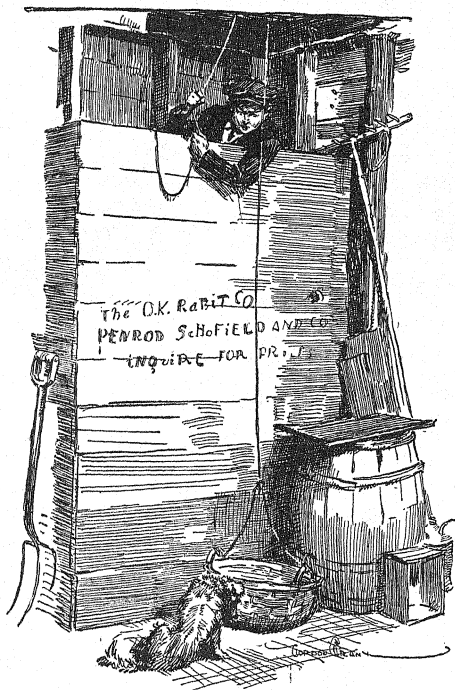 The O.K. RaBiT Co
PENROD ScHoFiELD AND CO
iNQuiRE FOR PRicEs
GORDON GRANT